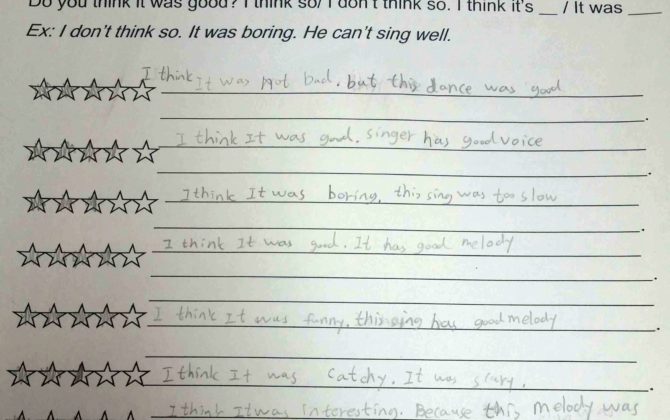 Do you think it was good? I think so/ I don't think so. I think it's __ / It was ____
Ex: I don't think so. It was boring. He can't sing well.
I think It was Not bad. but this dance was good
I think It was good. singer has good voice
I think It was boring, this sing was too slow
I think It was good. It has good melody
I think It was funny. this sing has good melody
I think It was catchy. It was
I think It was Interesting. Because this melody was